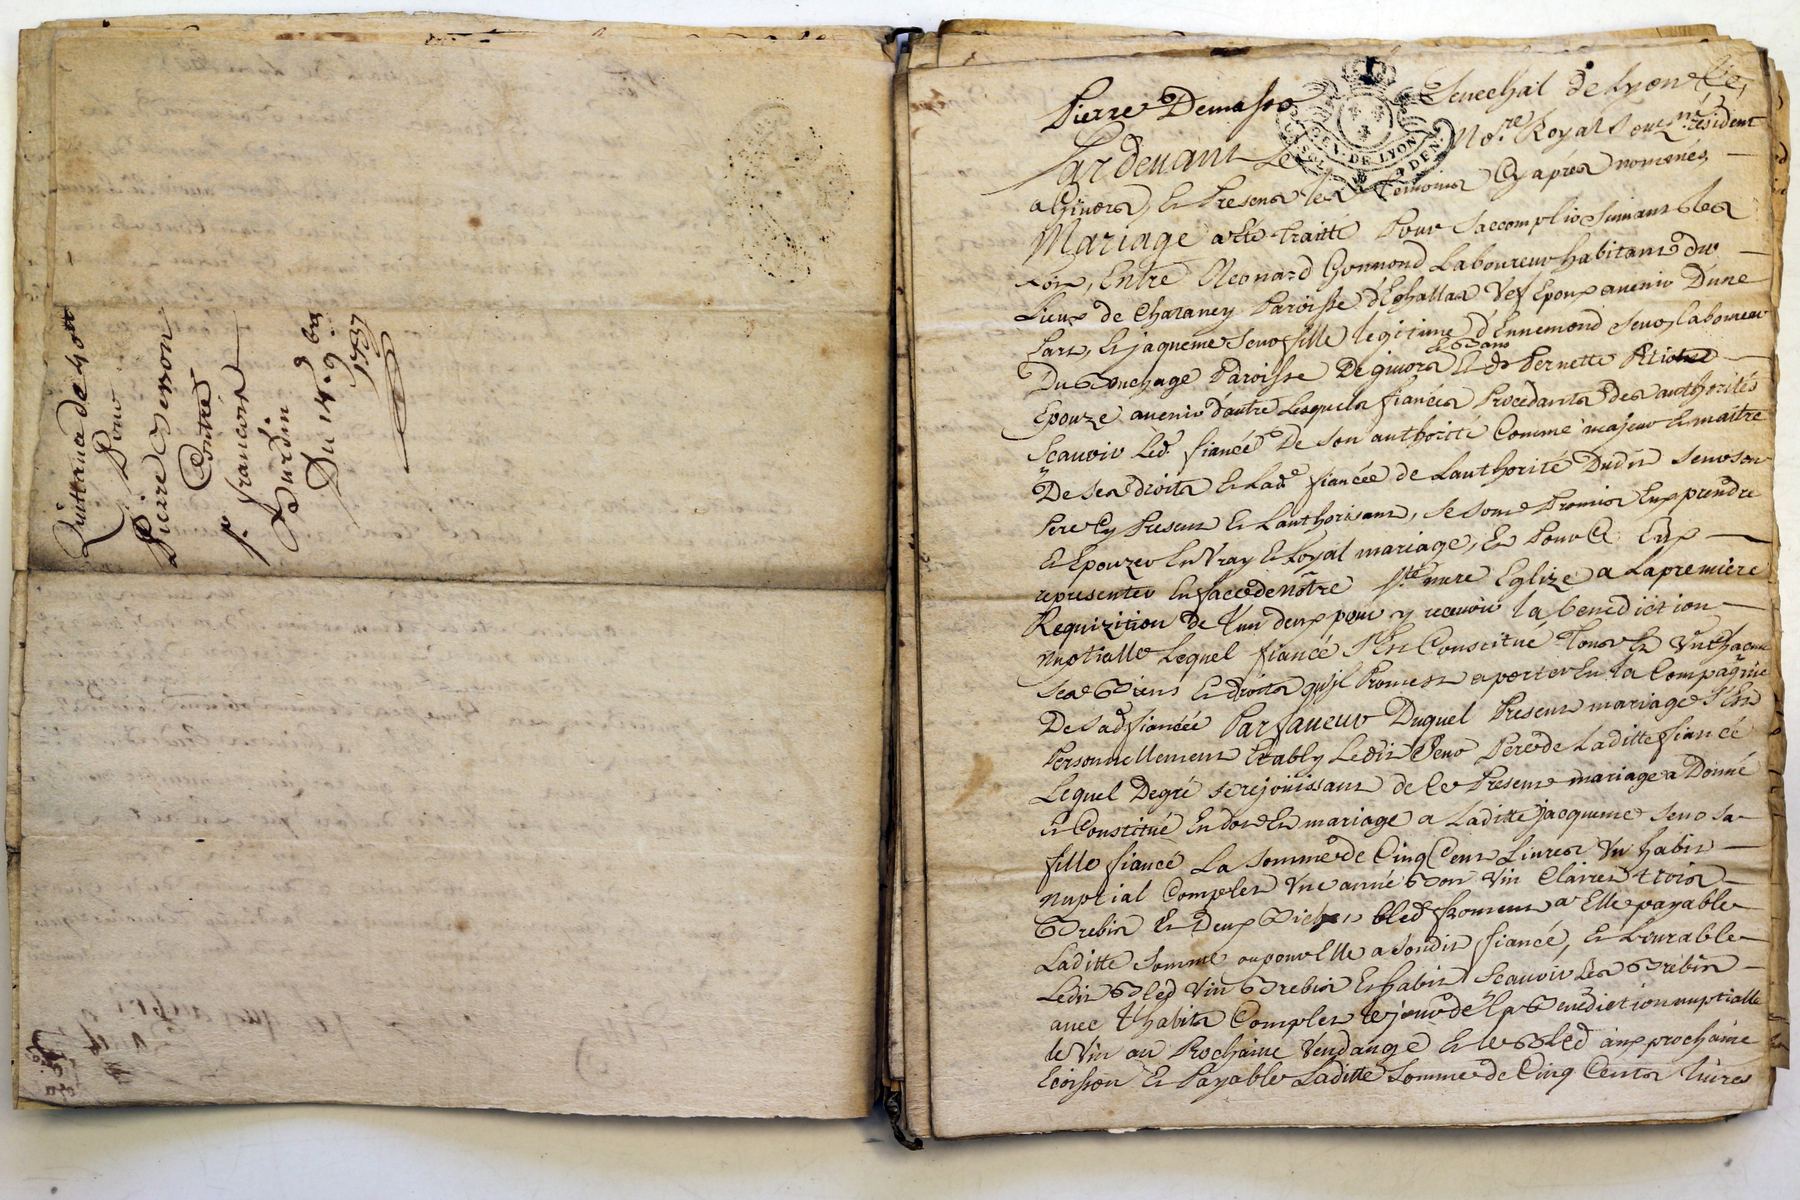 Quittance de 40tt
Pour
Pierre Verron
Contre
Sr. francois
Burdin
Du 14e 9bre
1737
Pierre Demasso Senechal de Lyon &c,
GEN. DE LYON
Pardevant Le No.re Royal Souz.né résident
a Givors, Et Presens les temoins Cy après nommés,
Mariage a eté traitté Pour Saccomplir Suivant les
Loix, Entre Leonard Gonnond Laboureur habitant du
Lieux de Charaney Paroisse d'Echallas Vef Epoux avenir Dune
Part, Et jaqueme Seno fille legitime d'Ennemond Seno, laboureur
Du Bouchage Paroisse De givors Et de Pernette
Epouze avenir d'autre Lesquels fiancés Procedants des authorités
Scavoir Led. fiancé De son authorité Comme majeur Et maitre
De ses droits Et Lad. fiancée de Lauthorité Dudit Seno son
Pere Cy Present Et Lauthorisant, se sont Promis Eux prendre
Et Epouzer En Vray Et Loyal mariage, Et Pour Ce Eux
representer En face de nôtre Ste. mere Eglize a La premiere
Requizition de l'un deux pour y recevoir la benediction
nuptialle Lequel fiancé S'est Constitué Tous Et Un chacun
Ses Biens Et droits qu'jl Promest aporter En la Compagnie
De Sad. fiancée Par faveur Duquel Present mariage S'est
Personnellement Etably Ledit Seno Pere de Laditte fiancée
Lequel De gré se rejouissant de Ce Present mariage a Donné
Et Constitué En dot Et mariage a Laditte jacqueme Seno sa
fille fiancé La Somme de Cinq Cent Livres Un habit
nuptial Complet Une année Bon Vin Clairet trois
Brebis Et Deux Bichets bled froment a Elle payable
Laditte Somme ou pour Elle a Sondit fiancé, Et Livrable
Ledit Bled Vin Brebis Et habit Scavoir Les Brebis
avec l'habits Complet le jour de La Benediction nuptialle
le Vin au Prochaine Vendange Et le Bled aux prochaine
Et Payable Laditte Somme de Cinq Cents livres